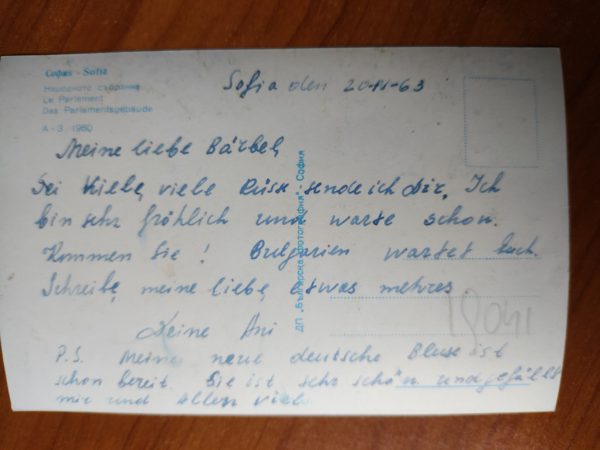 София - Sofia
Народното събрание
Le Parlement
Das Parlamentsgebäude
A-3 1960
Sofia den 20-IV-63
Meine liebe Bärbel,
viele viele Küsse sende ich Dir, Ich
bin sehr fröhlich und warte schon.
Kommen Sie! Bulgarien wartet Euch.
Schreibe, meine liebe, etwas mehres
Deine Ani
P.S. Meine neue deutsche Bluse ist
schon bereit. Sie ist sehr schön und gefällt
mir und allen viel.
ДП „Българска фотография" - София